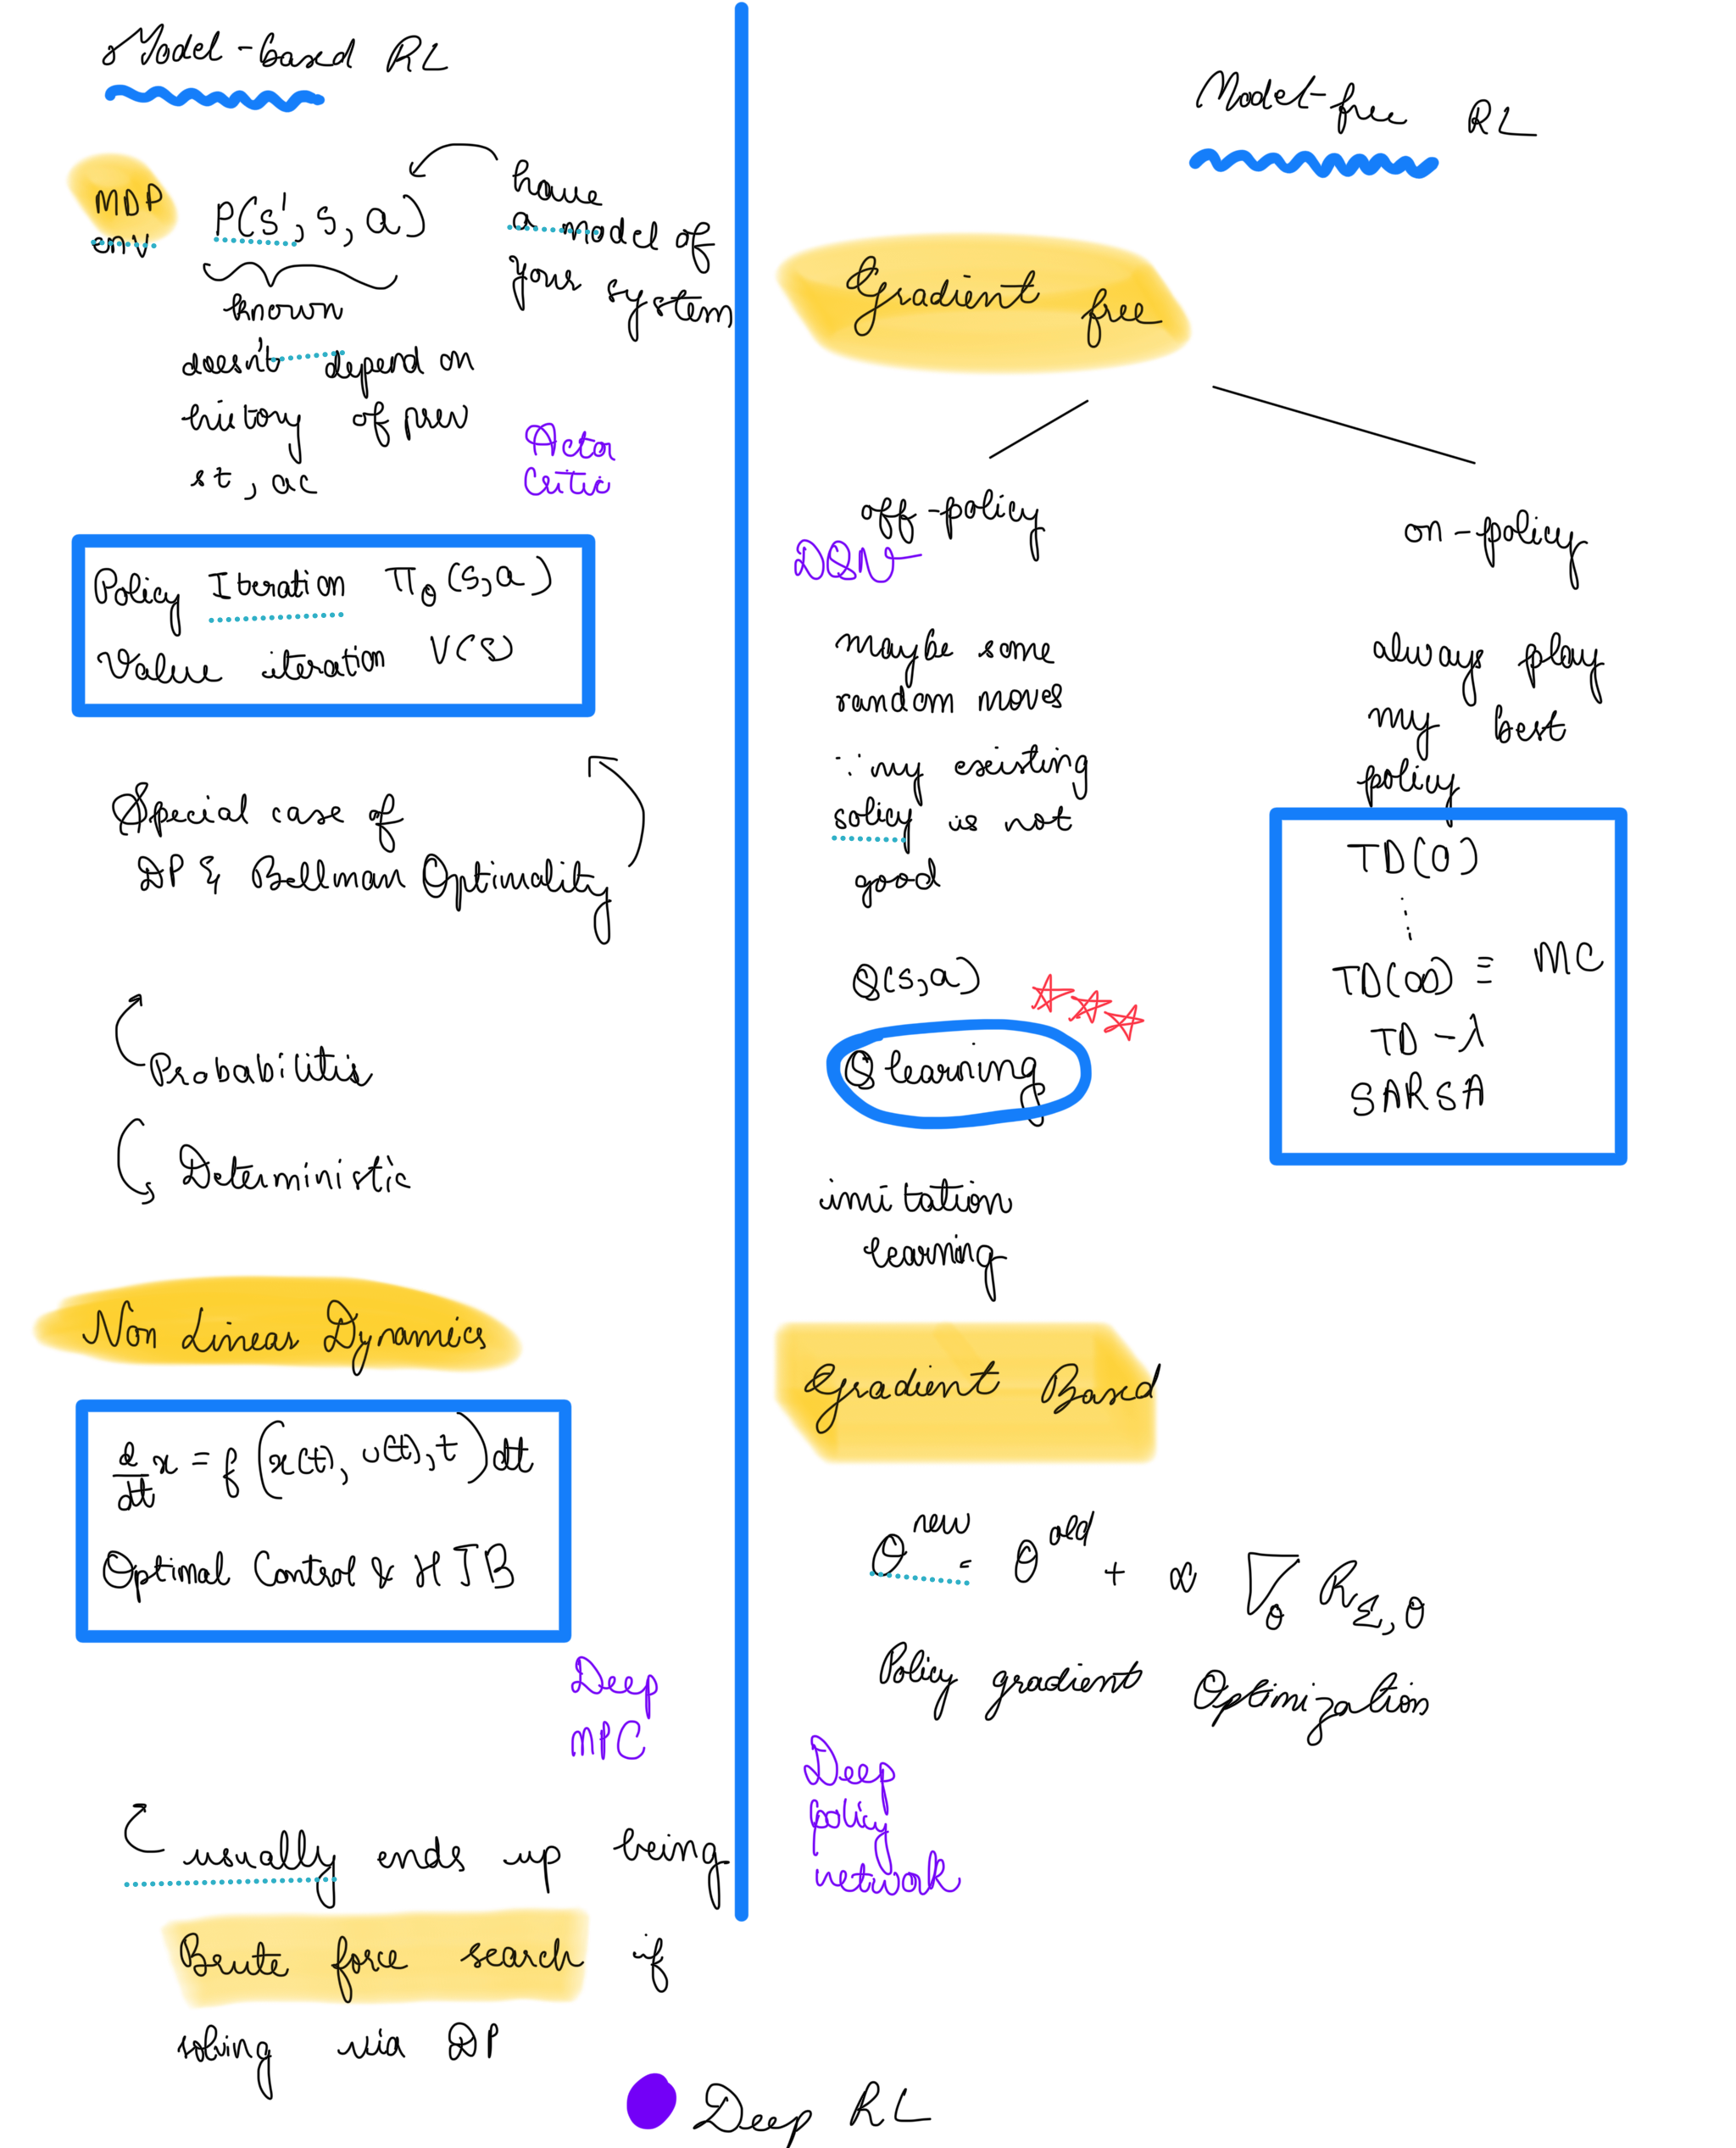 Model-based RL
MDP
env
P(s', s, a)
have
a model of
your system
known
doesn't depend on
history of prev
st, ac
Actor
Critic
Policy Iteration πθ(s,a)
Value iteration V(s)
Special case of
DP & Bellman Optimality
Probabilitis
Deterministic
Non Linear Dynamics
d/dt x = f(x(t), u(t), t) dt
Optimal Control & HJB
Deep
MPC
usually ends up being
Brute force search if
solving via DP
Model-free RL
Gradient free
off-policy
DQN
maybe some
random moves
∵ my existing
policy is not
good
Q(s,a)
Q learning
imitation
learning
on-policy
always play
my best
policy
TD(0)
⋮
TD(∞) ≡ MC
TD-λ
SARSA
Gradient Based
θ^new = θ^old + α ∇θ R_Σ,θ
Policy gradient Optimization
Deep
policy
network
Deep RL